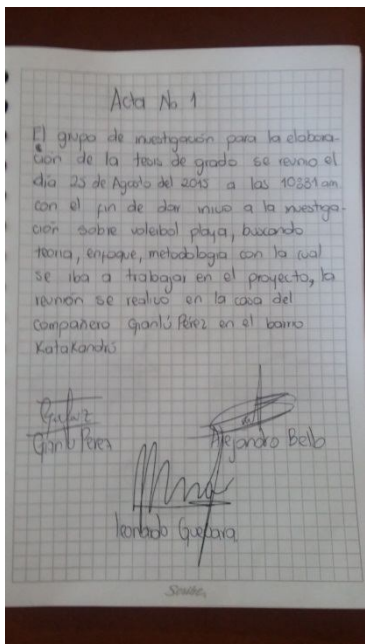 Acta No 1
El grupo de investigación para la elabora-
ción de la tesis de grado se reunio el
día 25 de Agosto del 2015 a las am
con el fin de dar inicio a la investiga-
ción sobre voleibol playa, buscando
teoria, enfoque, metodologia con la cual
se iba a trabajar en el proyecto, la
reunión se realizo en la casa del
compañero Gianlú Pérez en el barrio
Gianlú Pérez
Alejandro Bello
Leonardo Guevara